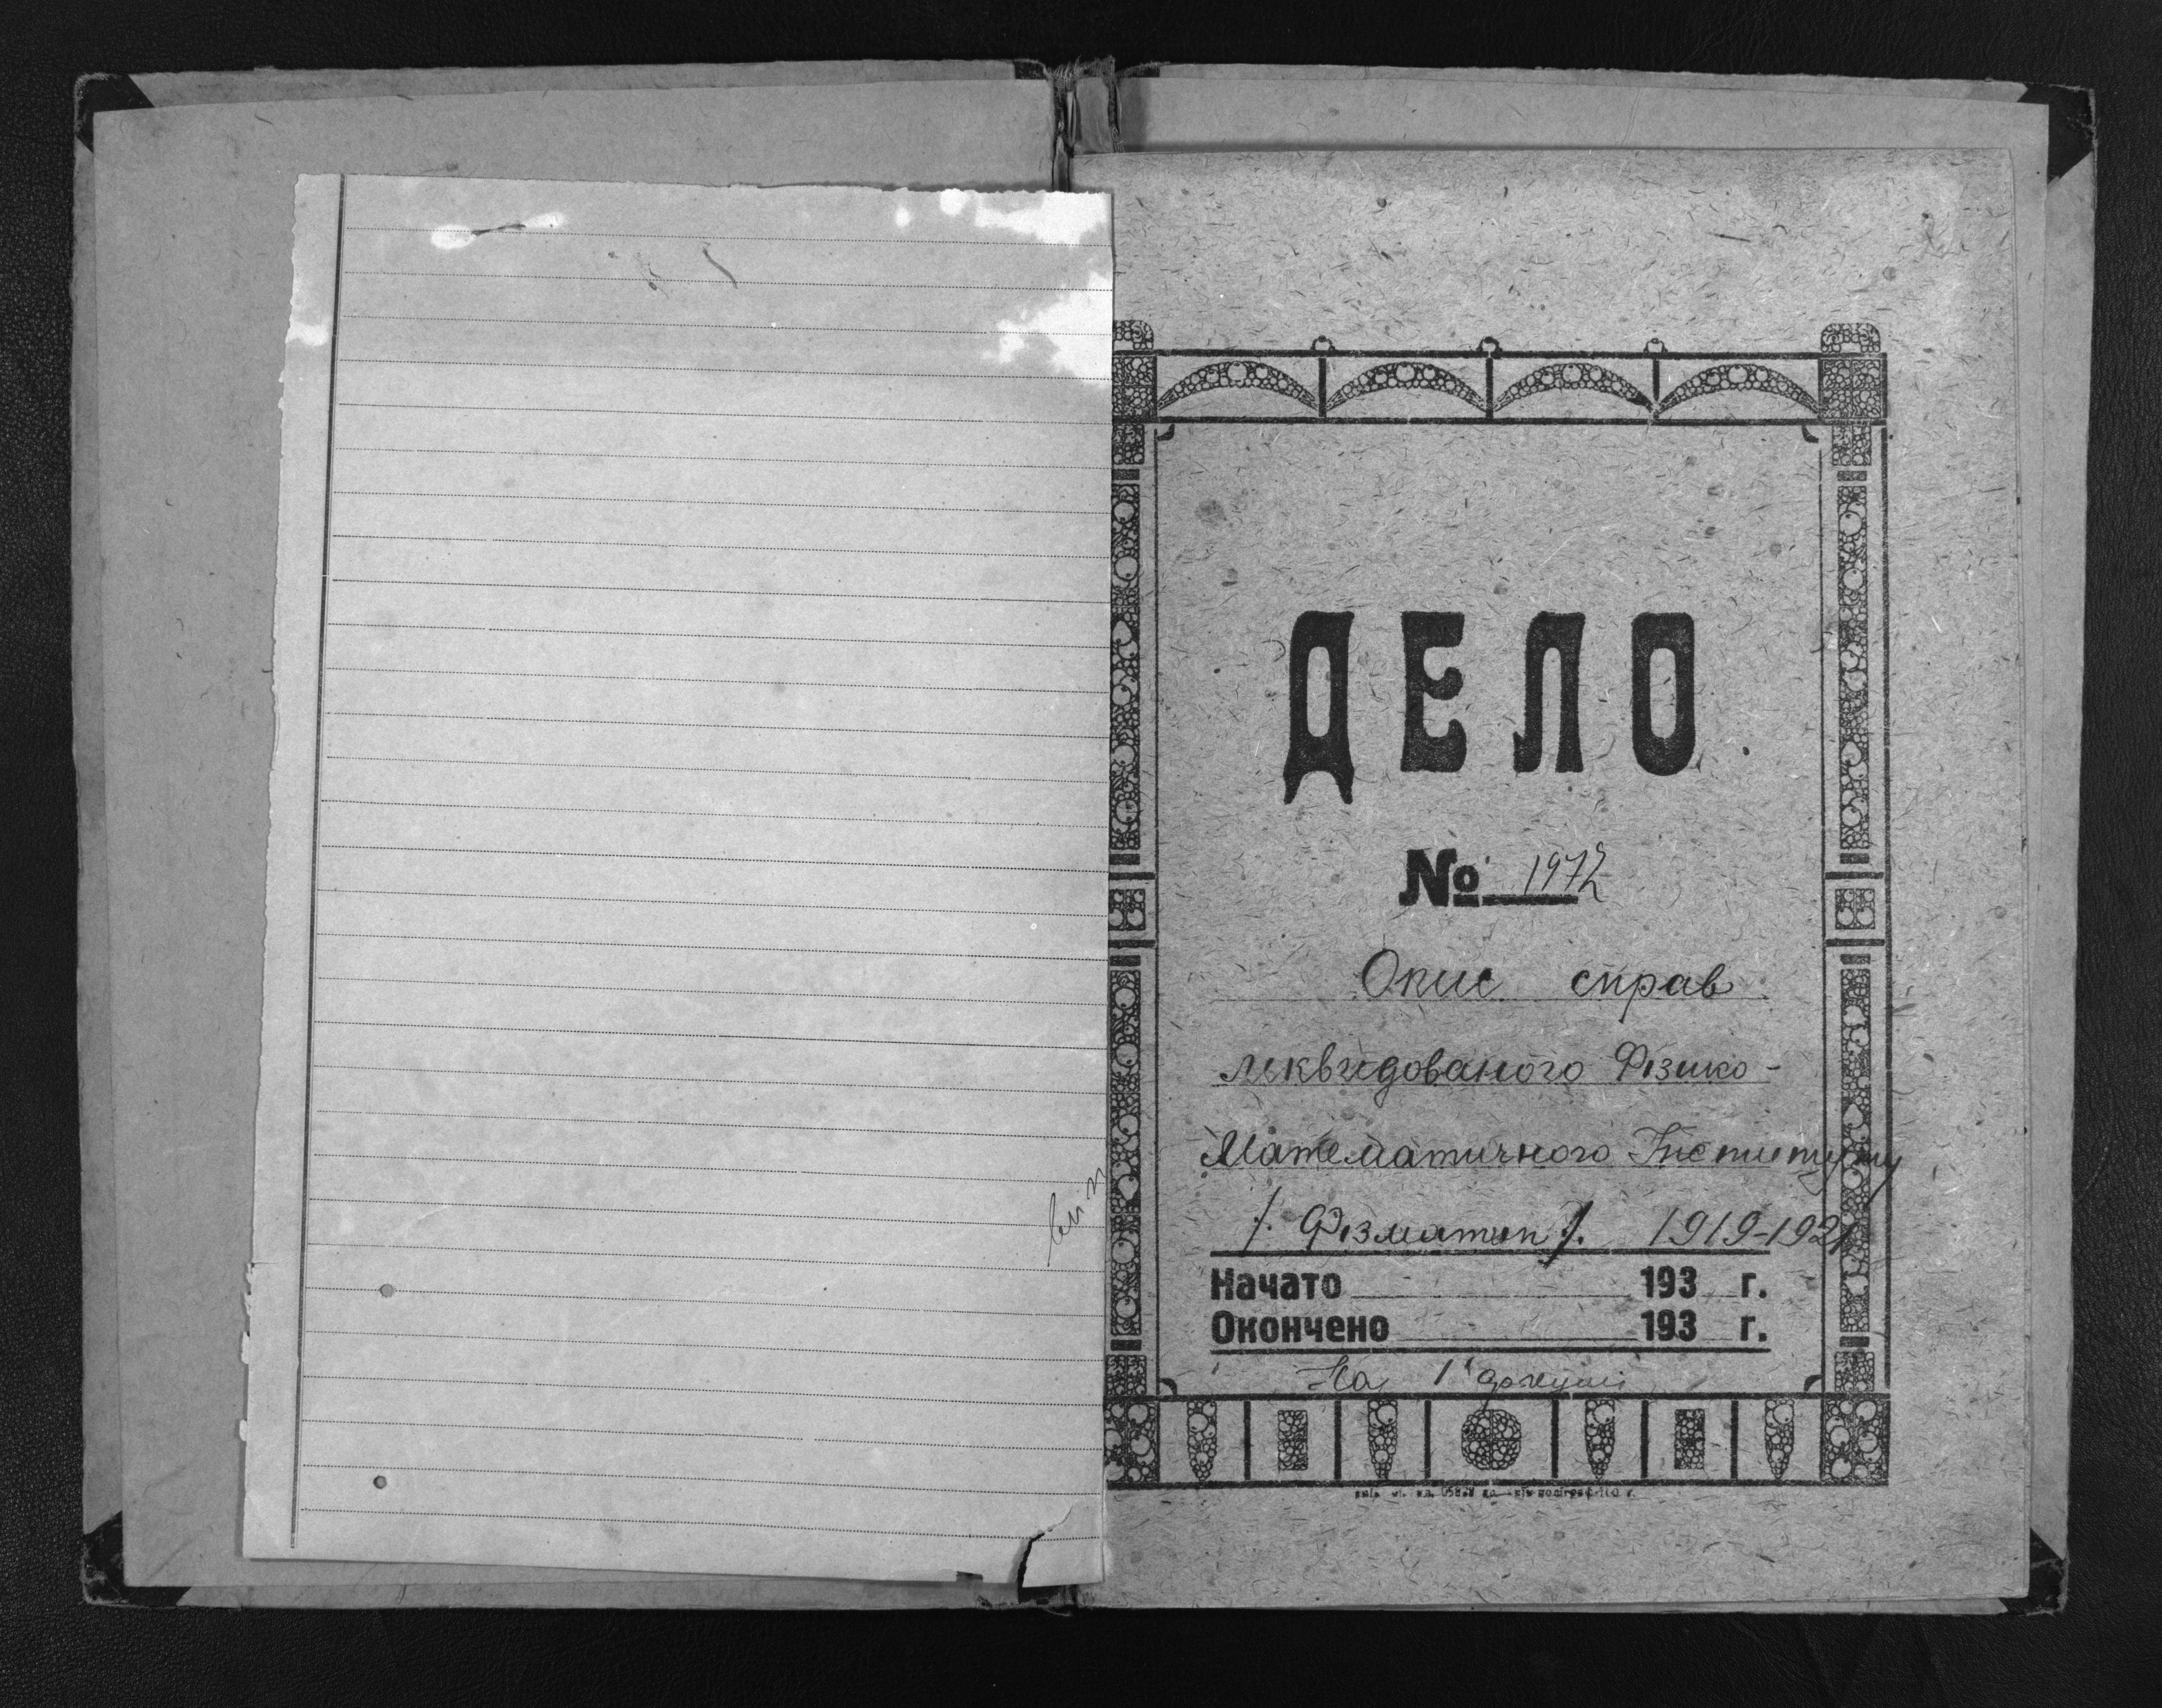 ДЕЛО
№ 1972
Опис справ
ліквідованого Фізико-
Математичного Інституту
/. Фізматин /. 1919-1921
Начато 193 г.
Окончено 193 г.
На 1